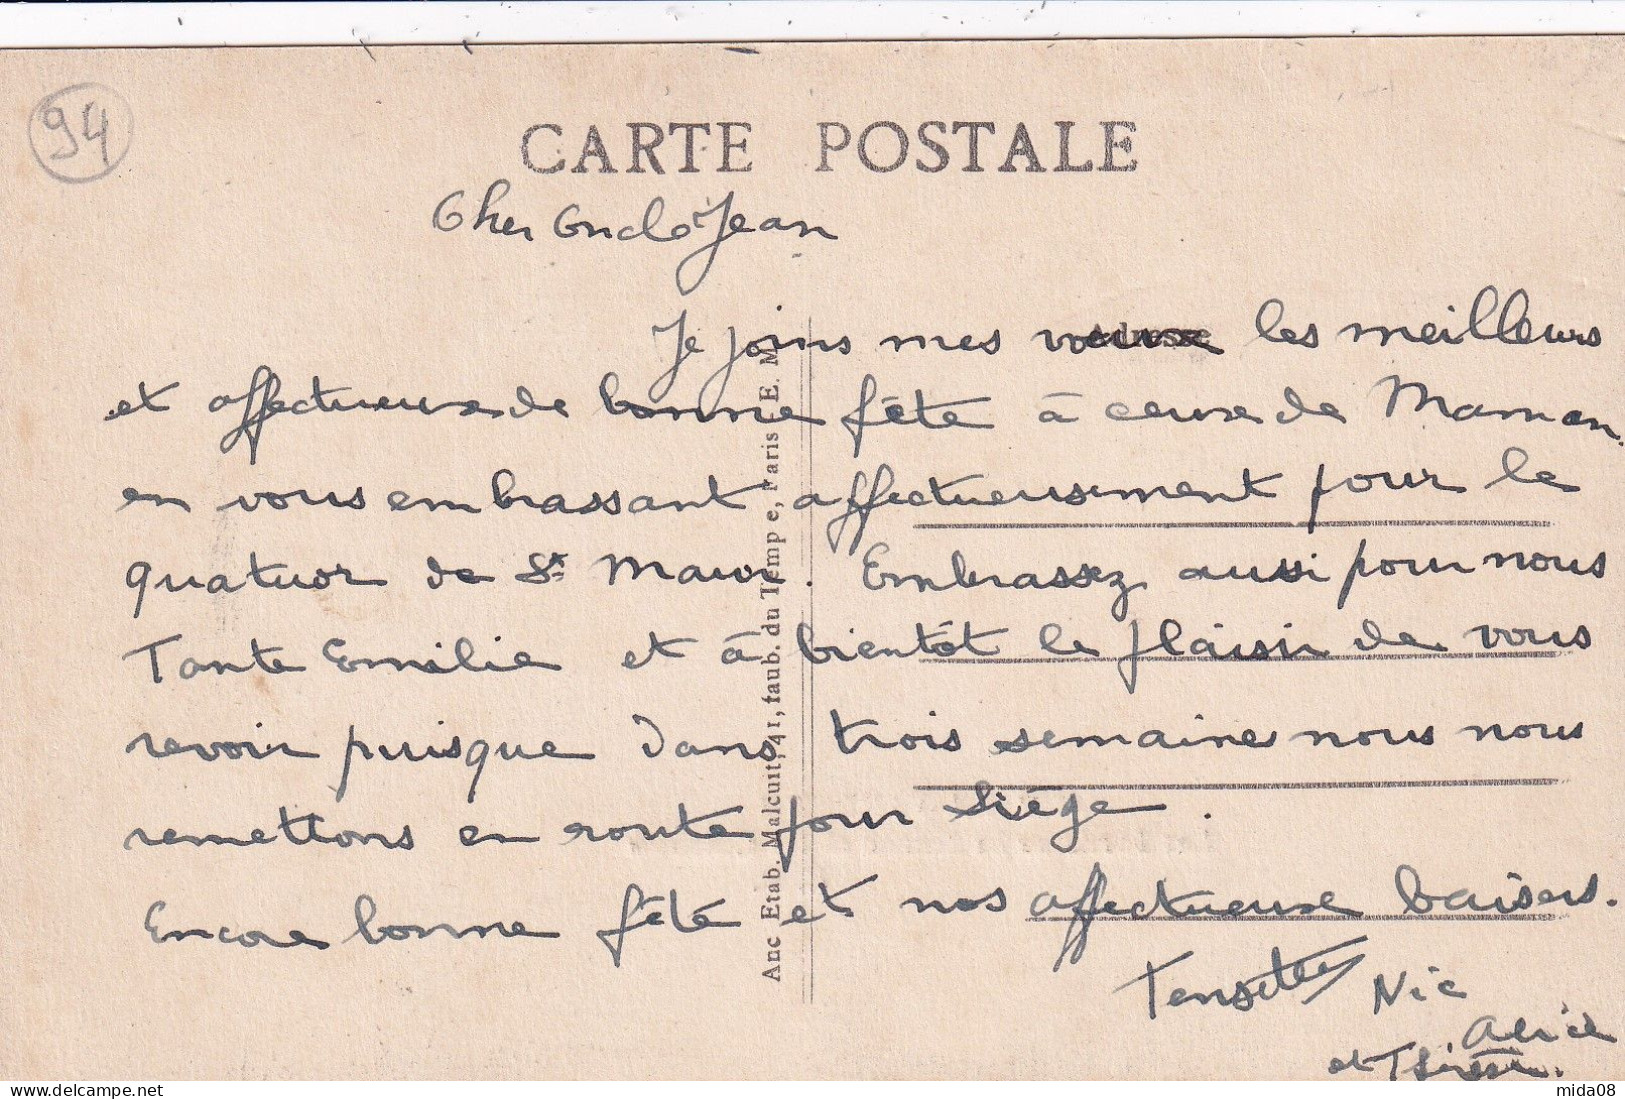 94
CARTE POSTALE
Cher Oncle Jean
Je joins mes voeux les meilleurs
et affectueux de bonne fête à ceux de Maman
en vous embrassant affectueusement pour le
quatuor de St Maur. Embrassez aussi pour nous
Tante Emilie et à bientôt le plaisir de vous
revoir puisque dans trois semaines nous nous
remettons en route pour Liège.
Encore bonne fête et nos affectueux baisers.
Nic
Alice
et
Anc Etab. Malcuit, 41, faub. du Temple, Paris - E. M.
Adresse
mida08